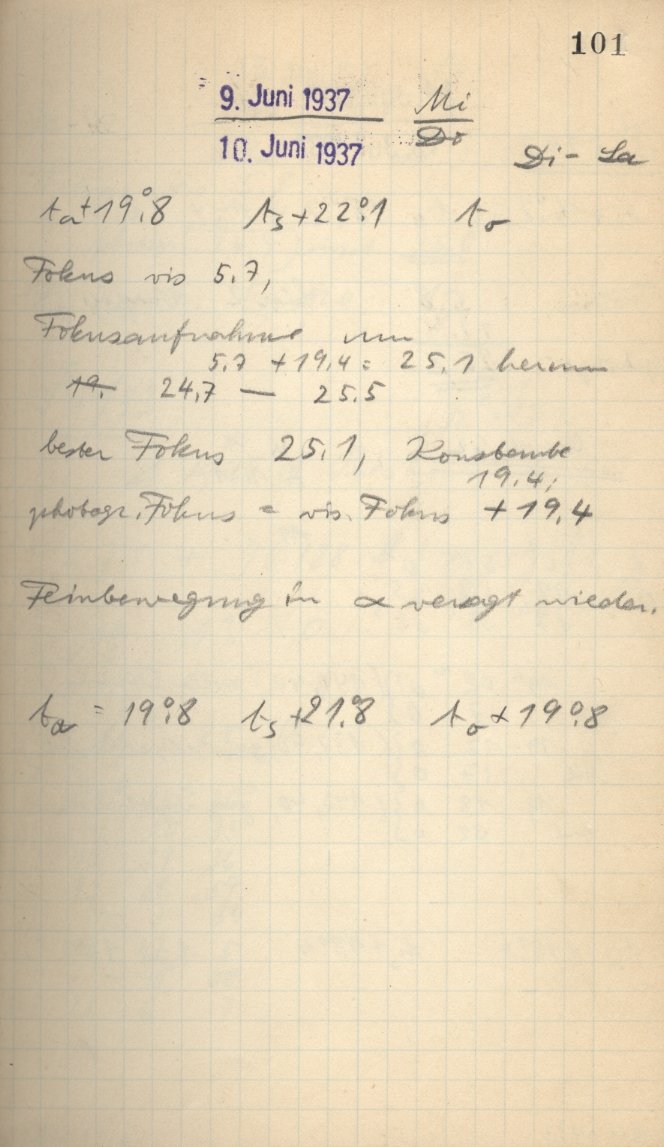 101
9. Juni 1937 Mi
10. Juni 1937 Do
Di - La
ta + 19°.8 ts + 22°.1 to
Fokus vis 5.7,
Fokusaufnahme um
5.7 + 19.4 = 25.1 herum
19. 24.7 — 25.5
bester Fokus 25.1, Konstante
19.4;
photogr. Fokus = vis. Fokus + 19.4
Feinbewegung in α versagt wieder.
ta = 19°.8 ts + 21°.8 to + 19°.8